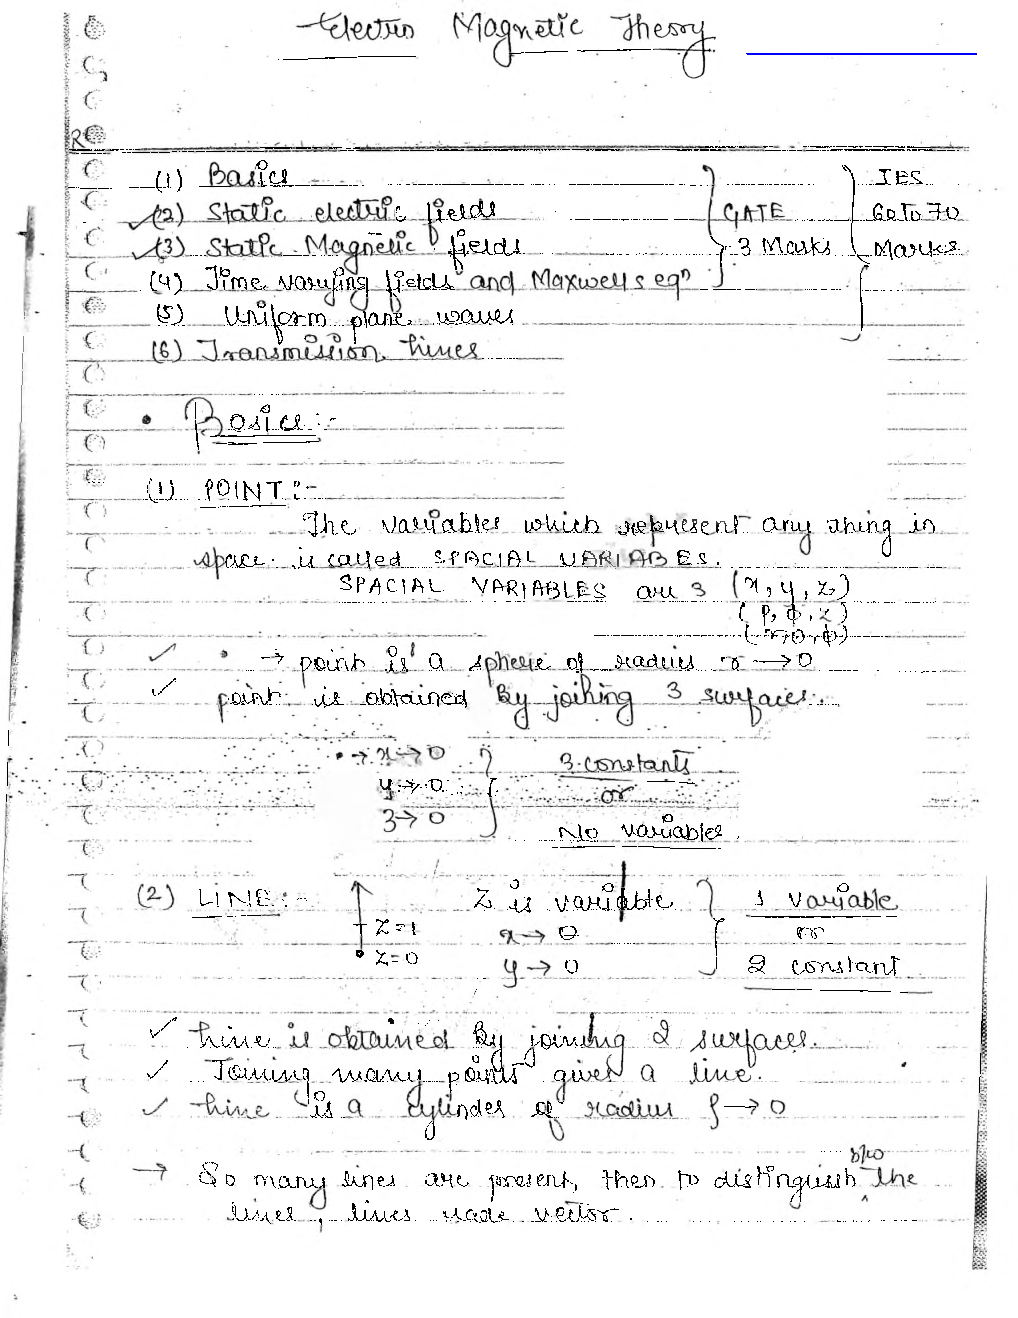 Electro Magnetic Theory
(1) Basics
(2) Static electric fields
(3) Static Magnetic fields
(4) Time varying fields and Maxwells eqn
(5) Uniform plane waves
(6) Transmission Lines
GATE
3 Marks
IES
60 To 70
Marks
• Basics :-
(1) POINT :-
The variables which represent any thing in
space is called SPACIAL VARIABLES.
SPACIAL VARIABLES are 3 (x, y, z)
(ρ, φ, z)
(r, θ, φ)
✓ • → point is a sphere of radius r → 0
✓ point is obtained By joining 3 surfaces.
• → x → 0
y → 0
z → 0
3 constants
or
No variables
(2) LINE :-
z=1
z=0
Z is variable
x → 0
y → 0
1 variable
or
2 constant
✓ Line is obtained By joining 2 surfaces.
✓ Joining many points gives a line.
✓ Line is a cylinder of radius ρ → 0
→ So many lines are present, then to distinguish b/w the
lines, lines made vector.